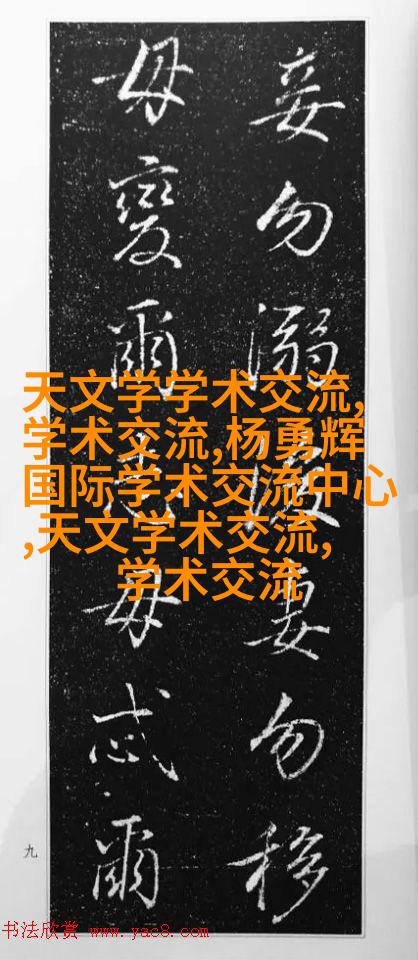 妾勿溺妻勿移
毋變爾毋忒爾
天文学学术交流,
学术交流,杨勇辉
国际学术交流中心
,天文学术交流,
学术交流
九
书法欣赏 www.yac8.com